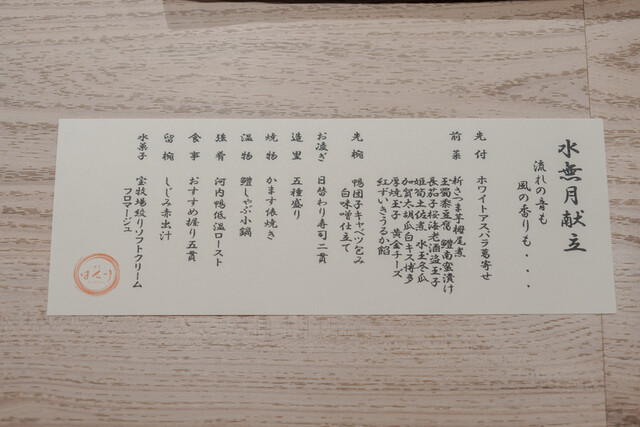 水無月献立
流れの音も
風の香りも・・・
先付 ホワイトアスパラ葛寄せ
前菜 新さつま芋梅尾煮
玉蜀黍豆腐 鱧南蛮漬け
長茄子桜海老酒盗玉子
姫筍土佐煮 水玉冬瓜
加賀太胡瓜白キス博多
厚焼玉子 黄金チーズ
紅ずいきうるか餡
先椀 鴨団子キャベツ包み
白味噌仕立て
お凌ぎ 日替わり寿司二貫
造里 五種盛り
焼物 かます俵焼き
温物 鱧しゃぶ小鍋
強肴 河内鴨低温ロースト
食事 おすすめ握り五貫
留椀 しじみ赤出汁
水菓子 宝牧場絞りソフトクリーム
フロマージュ